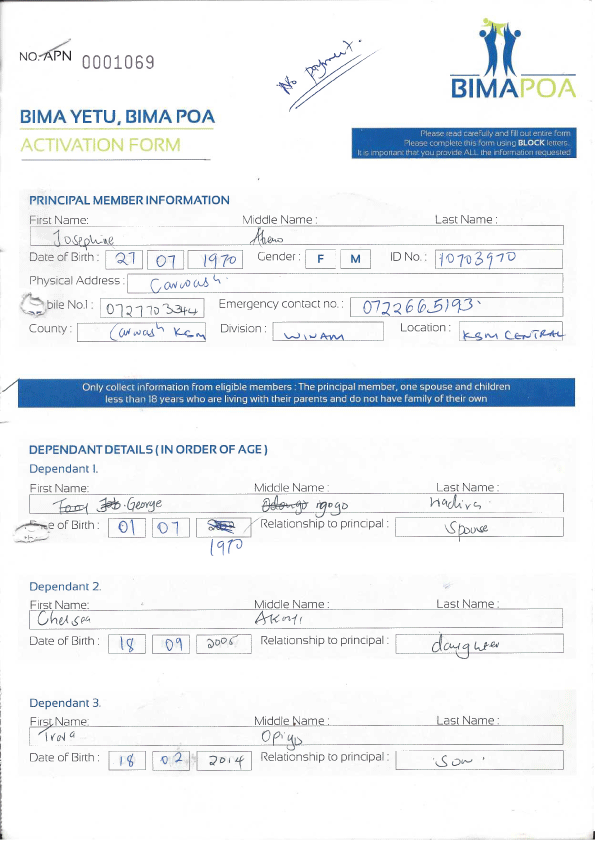 NO. APN 0001069
No payment.
BIMAPOA
BIMA YETU, BIMA POA
ACTIVATION FORM
Please read carefully and fill out entire form
Please complete this form using BLOCK letters.
It is important that you provide ALL the information requested
PRINCIPAL MEMBER INFORMATION
First Name: Middle Name : Last Name :
Josephine
Date of Birth : 27 07 1970 Gender : F M ID No. : 10703970
Physical Address : Carwash
bile No.1 : 0727703344 Emergency contact no. : 0722665193
County : Carwash KSM Division : WINAM Location : KSM CENTRAL
Only collect information from eligible members : The principal member, one spouse and children
less than 18 years who are living with their parents and do not have family of their own
DEPENDANT DETAILS ( IN ORDER OF AGE )
Dependant 1.
First Name: Middle Name : Last Name :
George
e of Birth : 01 07 Relationship to principal : Spouse
1970
Dependant 2.
First Name: Middle Name : Last Name :
Chelsea Akoyi
Date of Birth : 18 09 2005 Relationship to principal : daughter
Dependant 3.
First Name: Middle Name : Last Name :
Opiyo
Date of Birth : 18 02 2014 Relationship to principal : Son